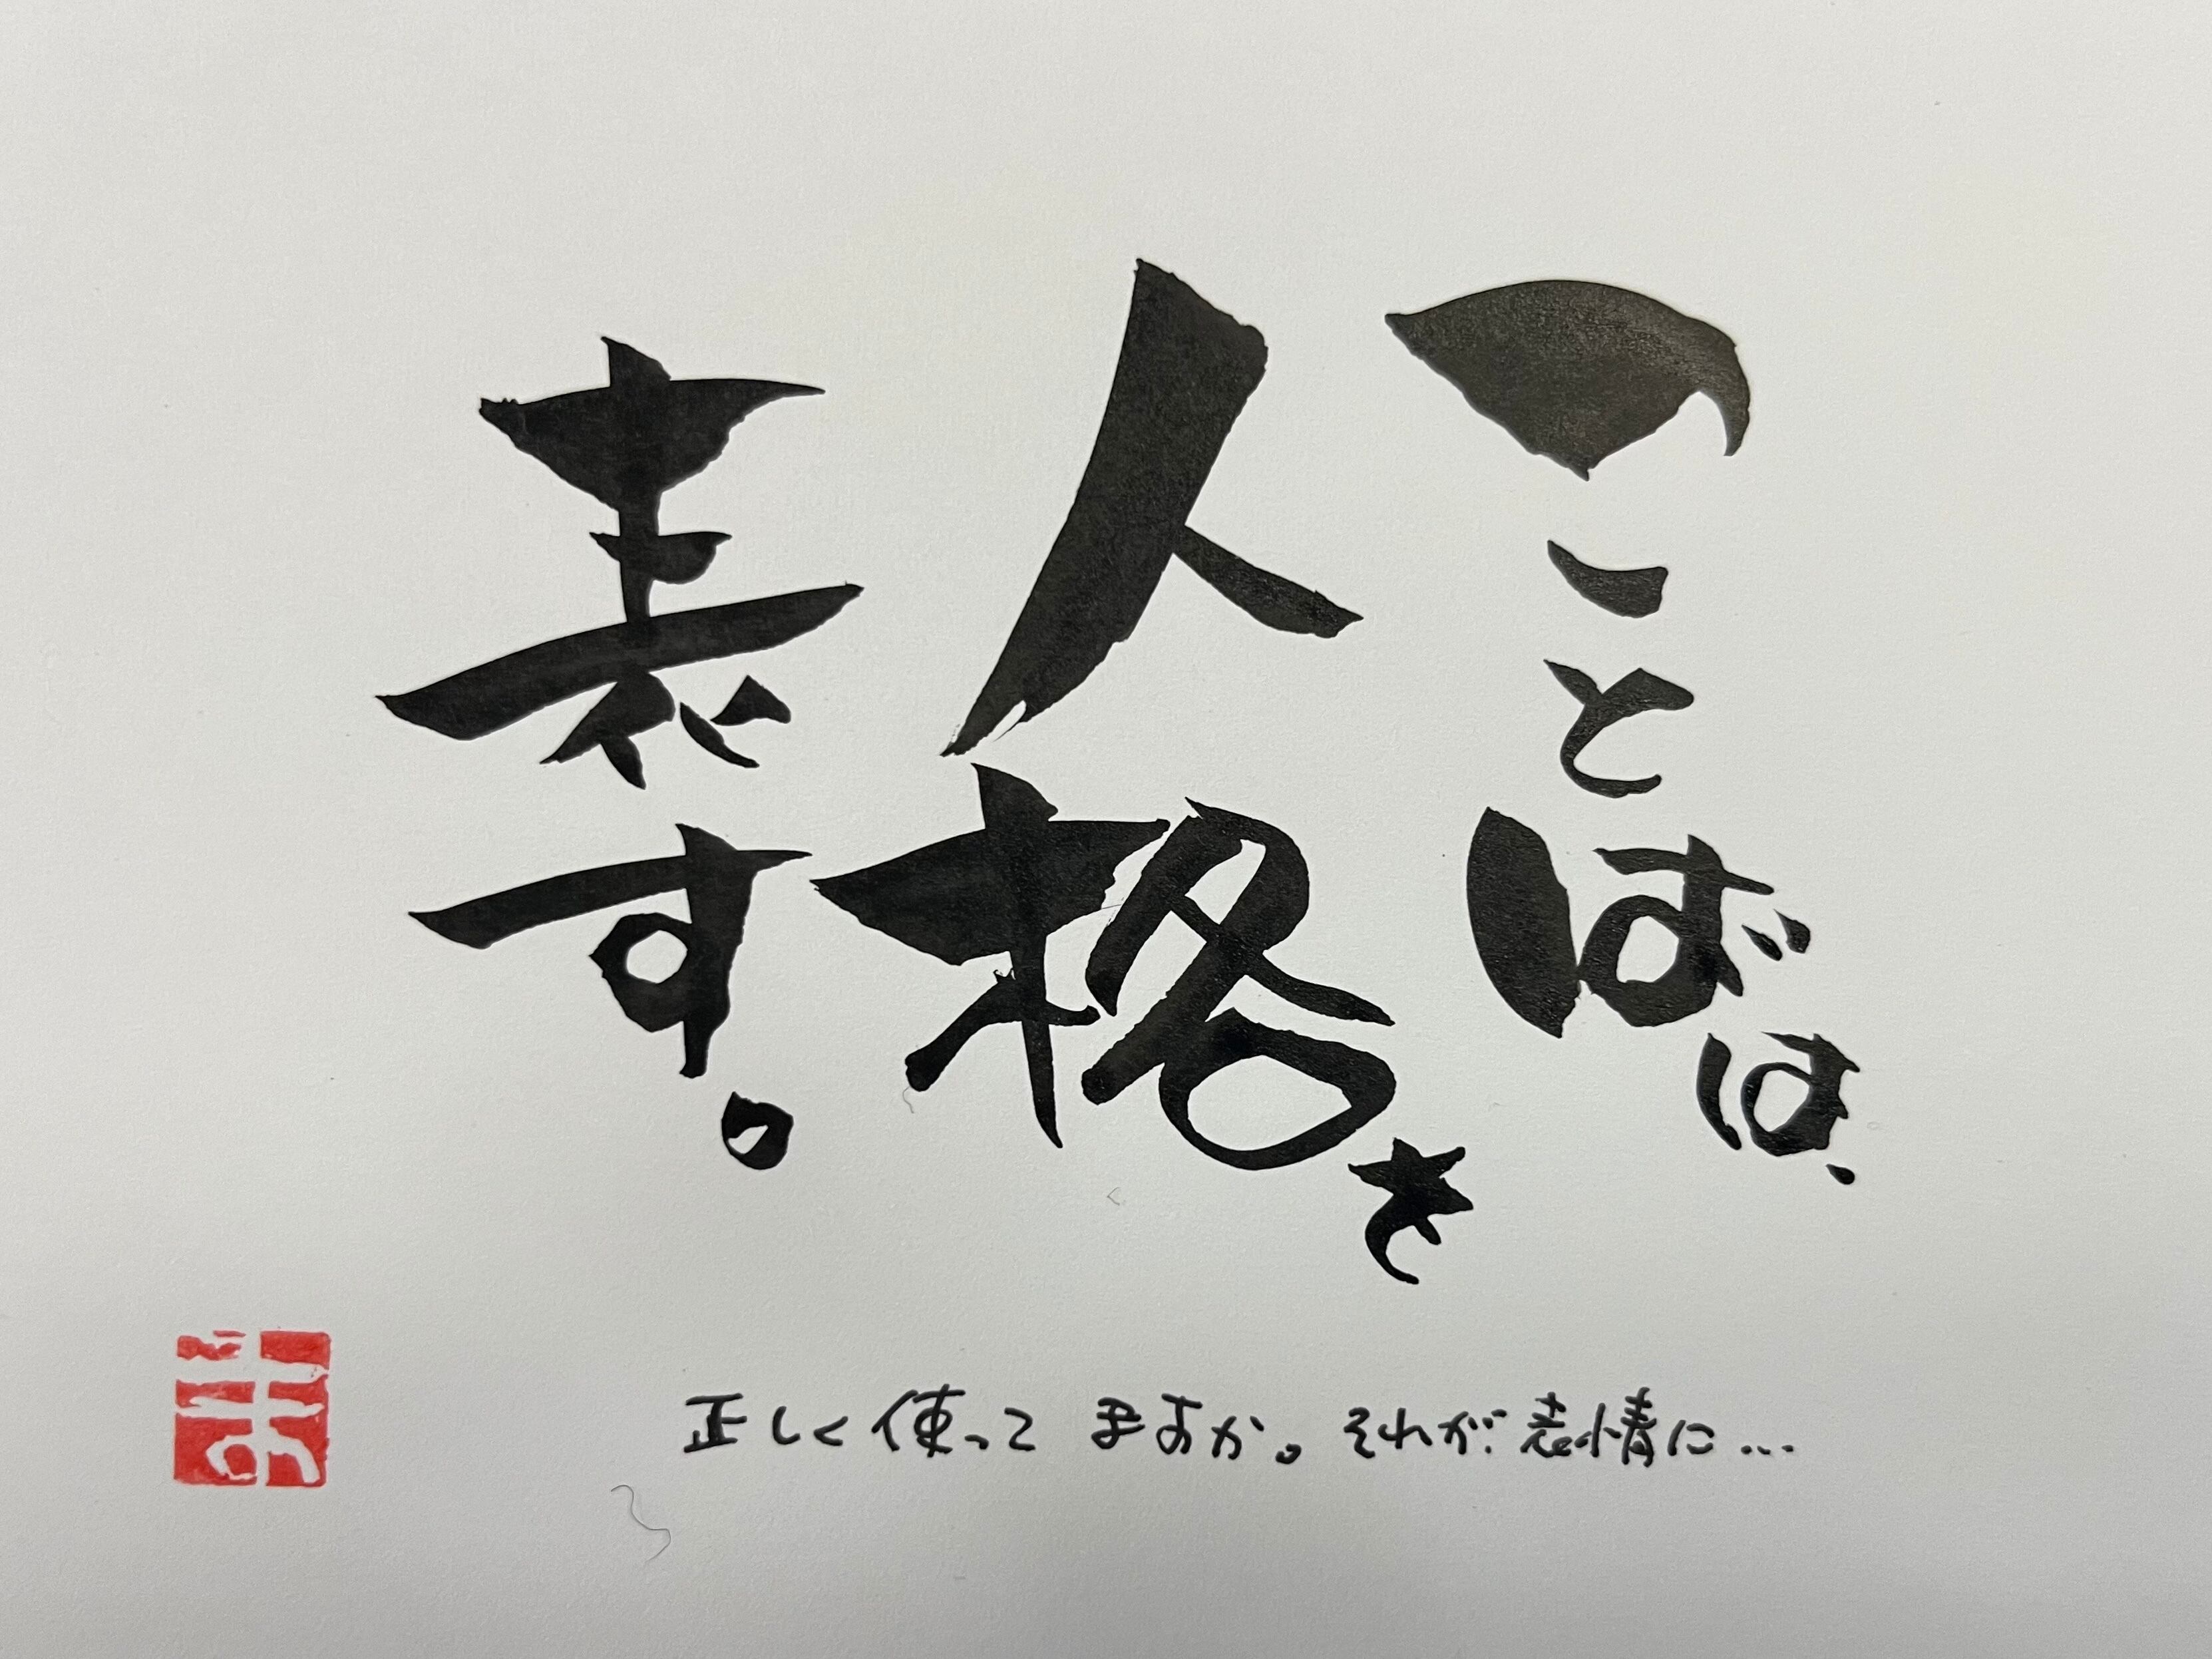 ことばは、
人格を
表す。
正しく使ってますか。それが表情に…